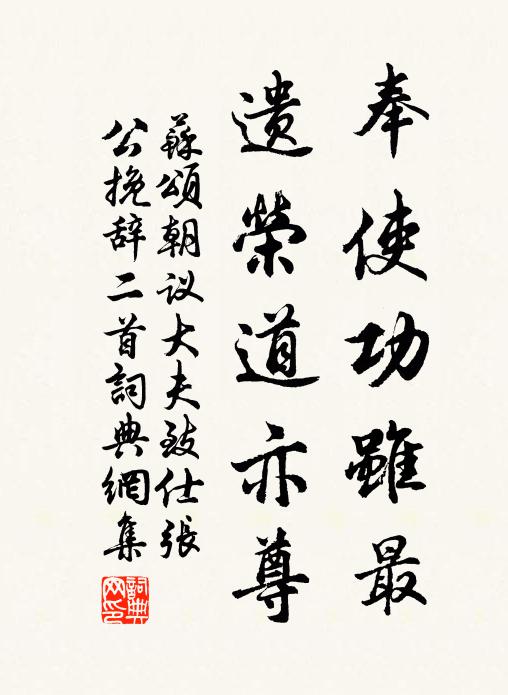 奉使功雖最
遗榮道亦尊
蘇頌朝议大夫致仕張
公挽辞二首詞典網集
詞典网印